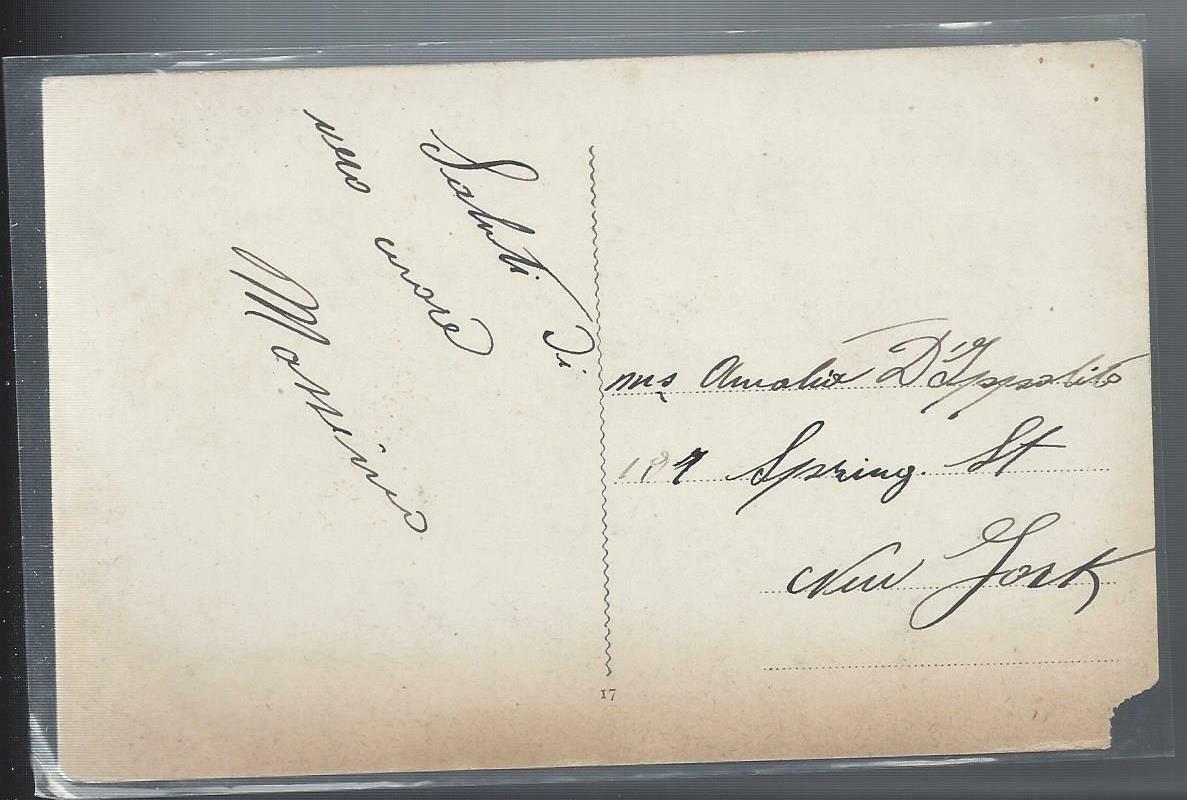 Saluti Di
vero cuore
Massimo
ms Amalia D'Ippolito
197 Spring. St
New York
17